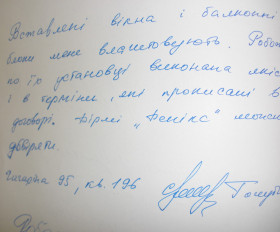 Вставлені вікна і балконні
блоки мене влаштовують. Робот
по їх установці виконана якіс
і в терміни, які прописані в
договорі. Фірмі „Фенікс" можна
довіряти.
Гагаріна 95, кв. 196